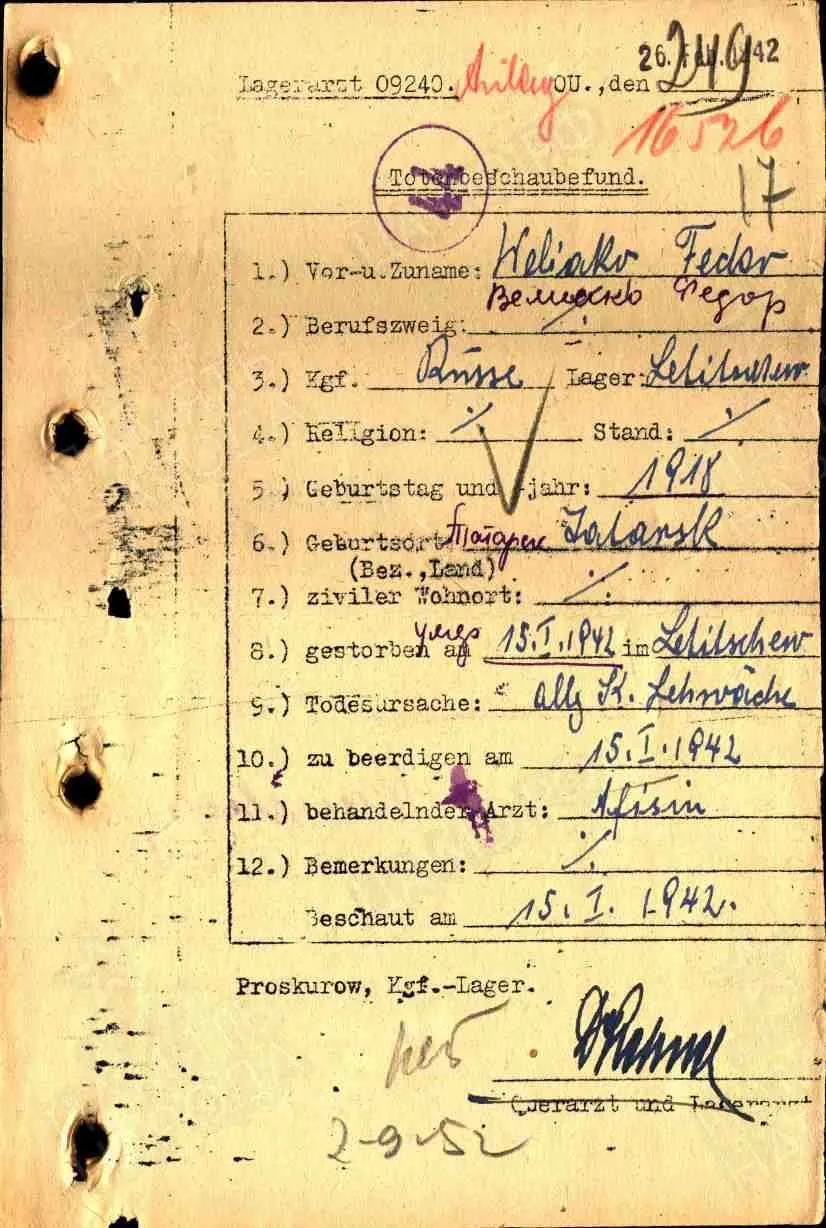 26. Feb. 1942
249
Lagerarzt 09240. OU.,den
16526
Totenbeschaubefund.
17
1.) Vor-u.Zuname: Weliako Fedor
Велиако Федор
2.) Berufszweig: ./.
3.) Kgf. Russe Lager: Letitschew
4.) Religion: ./. Stand: ./.
5.) Geburtstag und -jahr: 1918
6.) Geburtsort Татарск Tatarsk
(Bez.,Land)
7.) ziviler Wohnort: ./.
умер
8.) gestorben am 15.I.1942 im Letitschew
9.) Todesursache: allg. K. Schwäche
10.) zu beerdigen am 15.I.1942
11.) behandelnder Arzt: Afisin
12.) Bemerkungen: ./.
Beschaut am 15.I.1942.
Proskurow, Kgf.-Lager.
2-9-52
Oberarzt und Lagerarzt